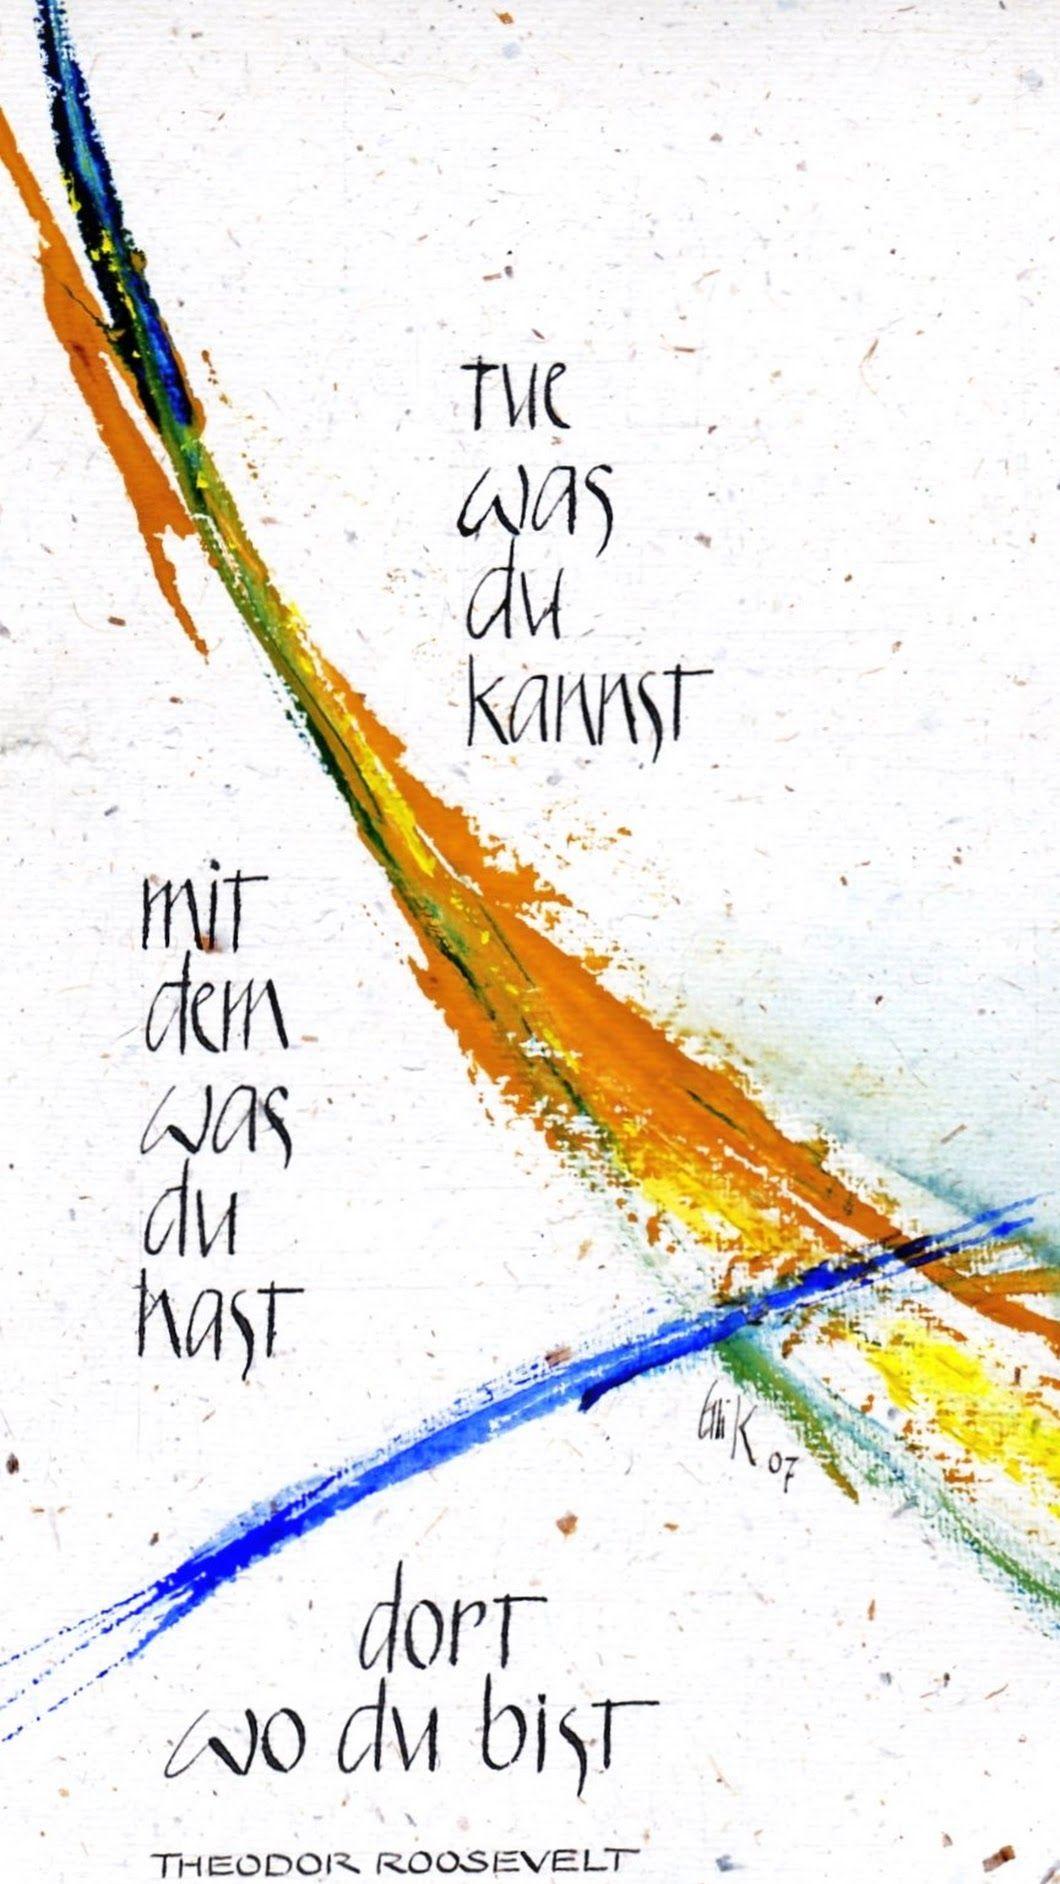 tue
was
du
kannst
mit
dem
was
du
hast
07
dort
wo du bist
THEODOR ROOSEVELT